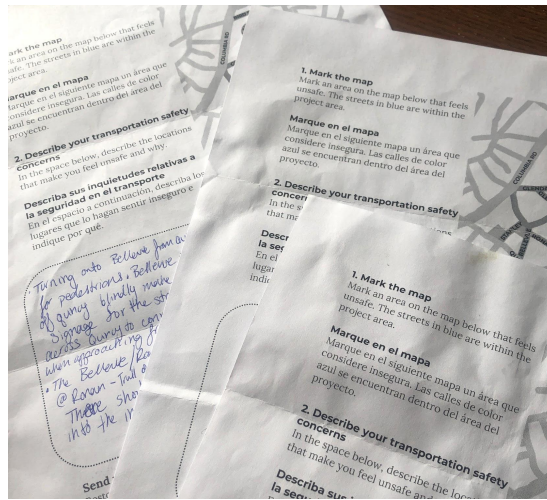 ark the map
k an area on the map below that feels
safe. The streets in blue are within the
oject area.
arque en el mapa
arque en el siguiente mapa un área que
considere insegura. Las calles de color
azul se encuentran dentro del área del
proyecto.
2. Describe your transportation safety
concerns
In the space below, describe the locations
that make you feel unsafe and why.
Describa sus inquietudes relativas a
la seguridad en el transporte
En el espacio a continuación, describa los
lugares que lo hagan sentir inseguro e
indique por qué.
Turning onto Bellevue from
for pedestrians. Bellevue
of blindly
Signage for the
across
when approaching
• The Bellevue
@ Ronan - 
There
into the
Send
COLUMBIA RD
1. Mark the map
Mark an area on the map below that feels
unsafe. The streets in blue are within the
project area.
Marque en el mapa
Marque en el siguiente mapa un área que
considere insegura. Las calles de color
azul se encuentran dentro del área del
proyecto.
2. Describe your transportation safety
concerns
In the s
that ma
Descr
la seg
En el
lugar
indic
COLUMBIA RD
1. Mark the map
Mark an area on the map below that feels
unsafe. The streets in blue are within the
project area.
Marque en el mapa
Marque en el siguiente mapa un área que
considere insegura. Las calles de color
azul se encuentran dentro del área del
proyecto.
2. Describe your transportation safety
concerns
In the space below, describe the loca
that make you feel unsafe an
Describa sus
la segu